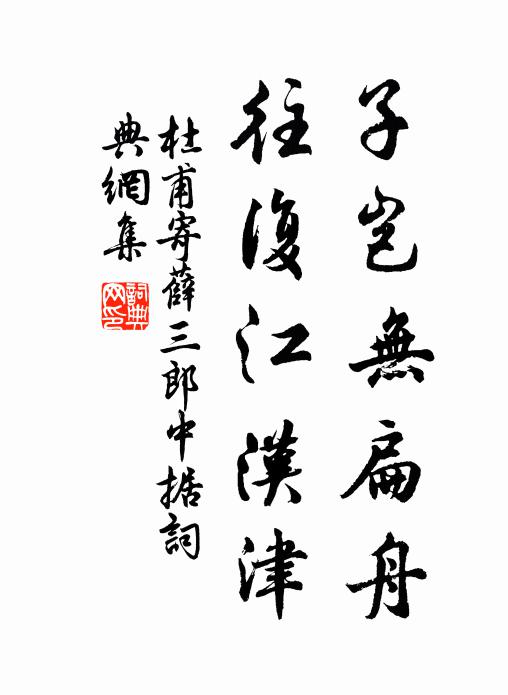 子岂無扁舟
往復江漢津
杜甫寄薛三郎中据詞
典網集
詞典網印